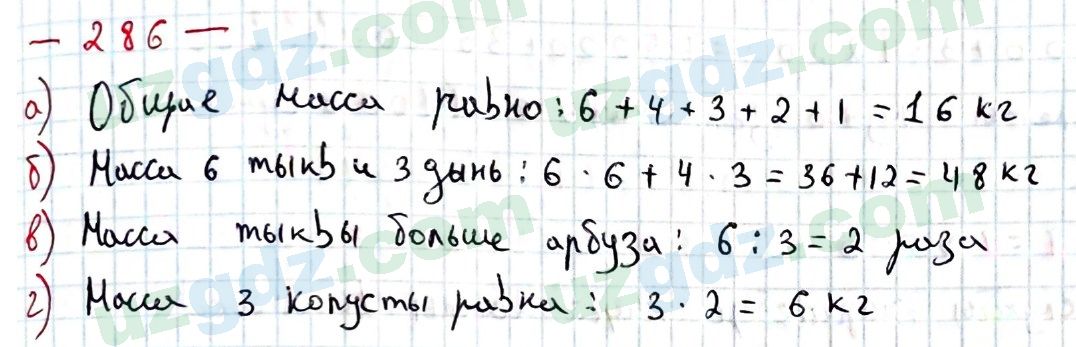 — 286 —
а) Общие масса равно: 6 + 4 + 3 + 2 + 1 = 16 кг
б) Масса 6 тыкв и 3 дынь: 6 · 6 + 4 · 3 = 36 + 12 = 48 кг
в) Масса тыквы больше арбуза: 6 : 3 = 2 раза
г) Масса 3 копусты равна: 3 · 2 = 6 кг
uzgdz.com
uzgdz.com
uzgdz.com
uzgdz.com